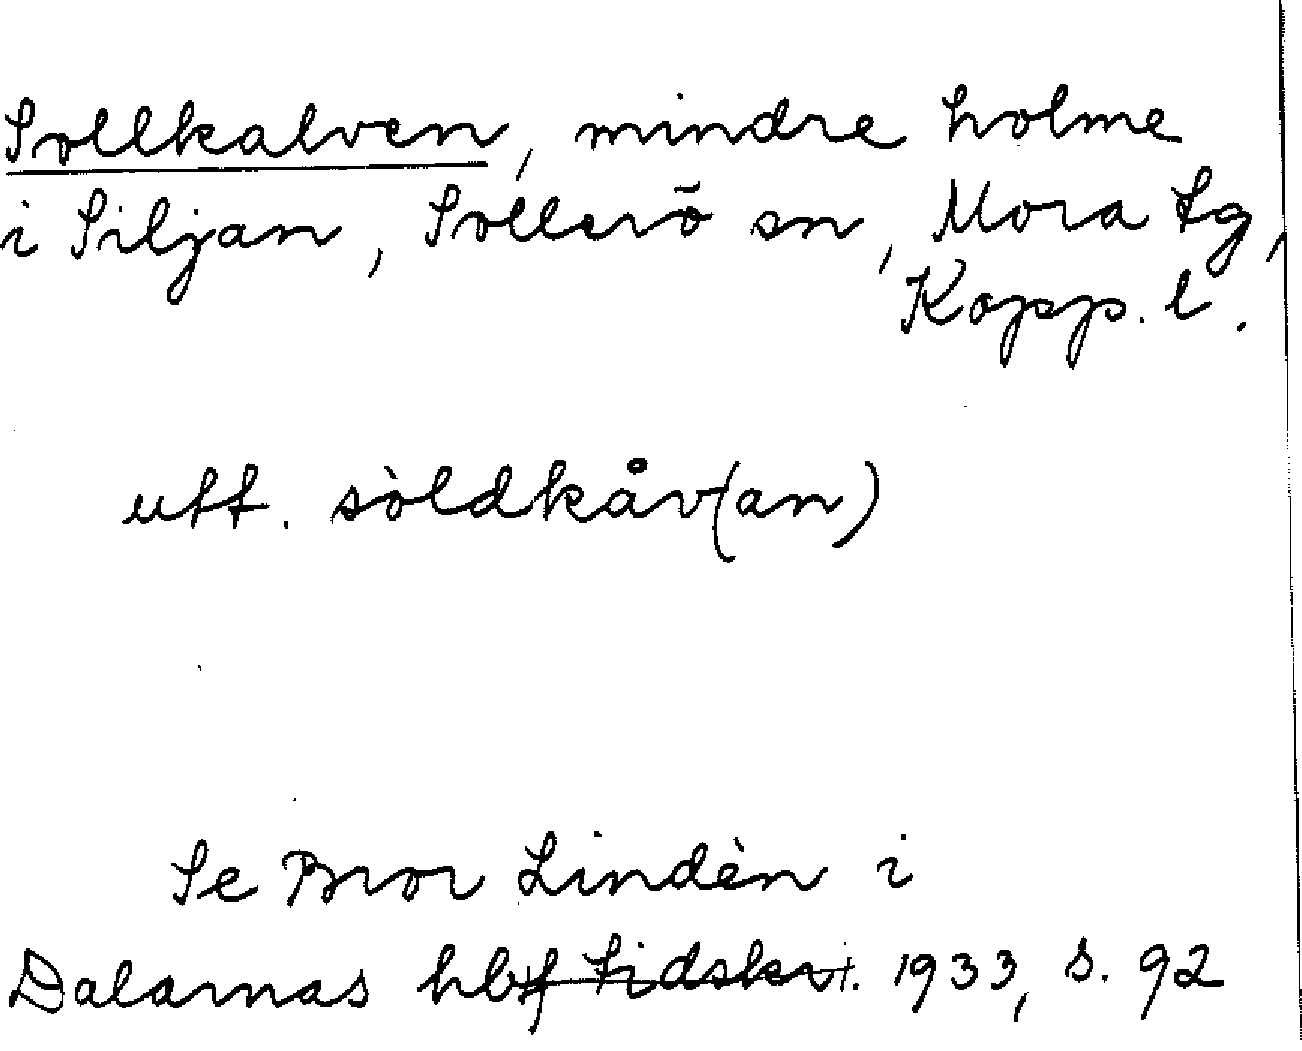 Sollkalven, mindre holme
i Siljan, Sollerö sn, Mora tg,
Kopp. l.
utt. sòldkåv(an)
Se Bror Lindèn i
Dalarnas hbf tidskr. 1933, s. 92